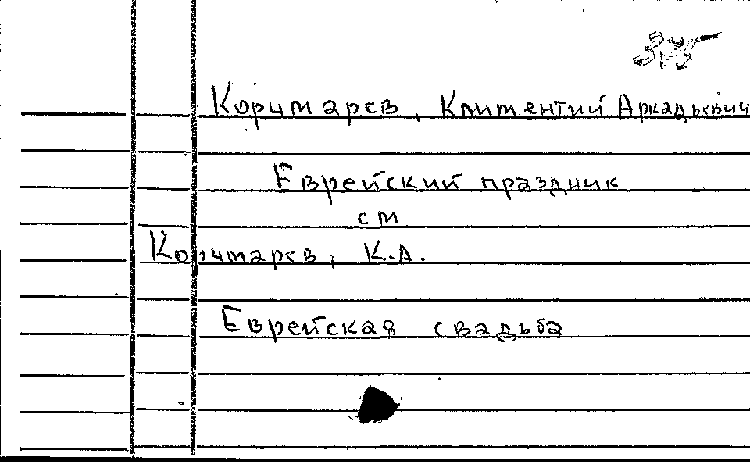 Корчмарев, Климентий Аркадьевич
Еврейский праздник
см
Корчмарев, К.А.
Еврейская свадьба